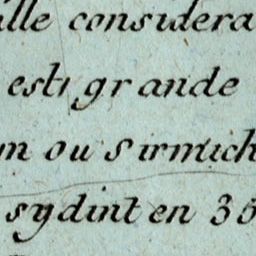 ille considera
est grande
n ou Sirmich
sydint en 35